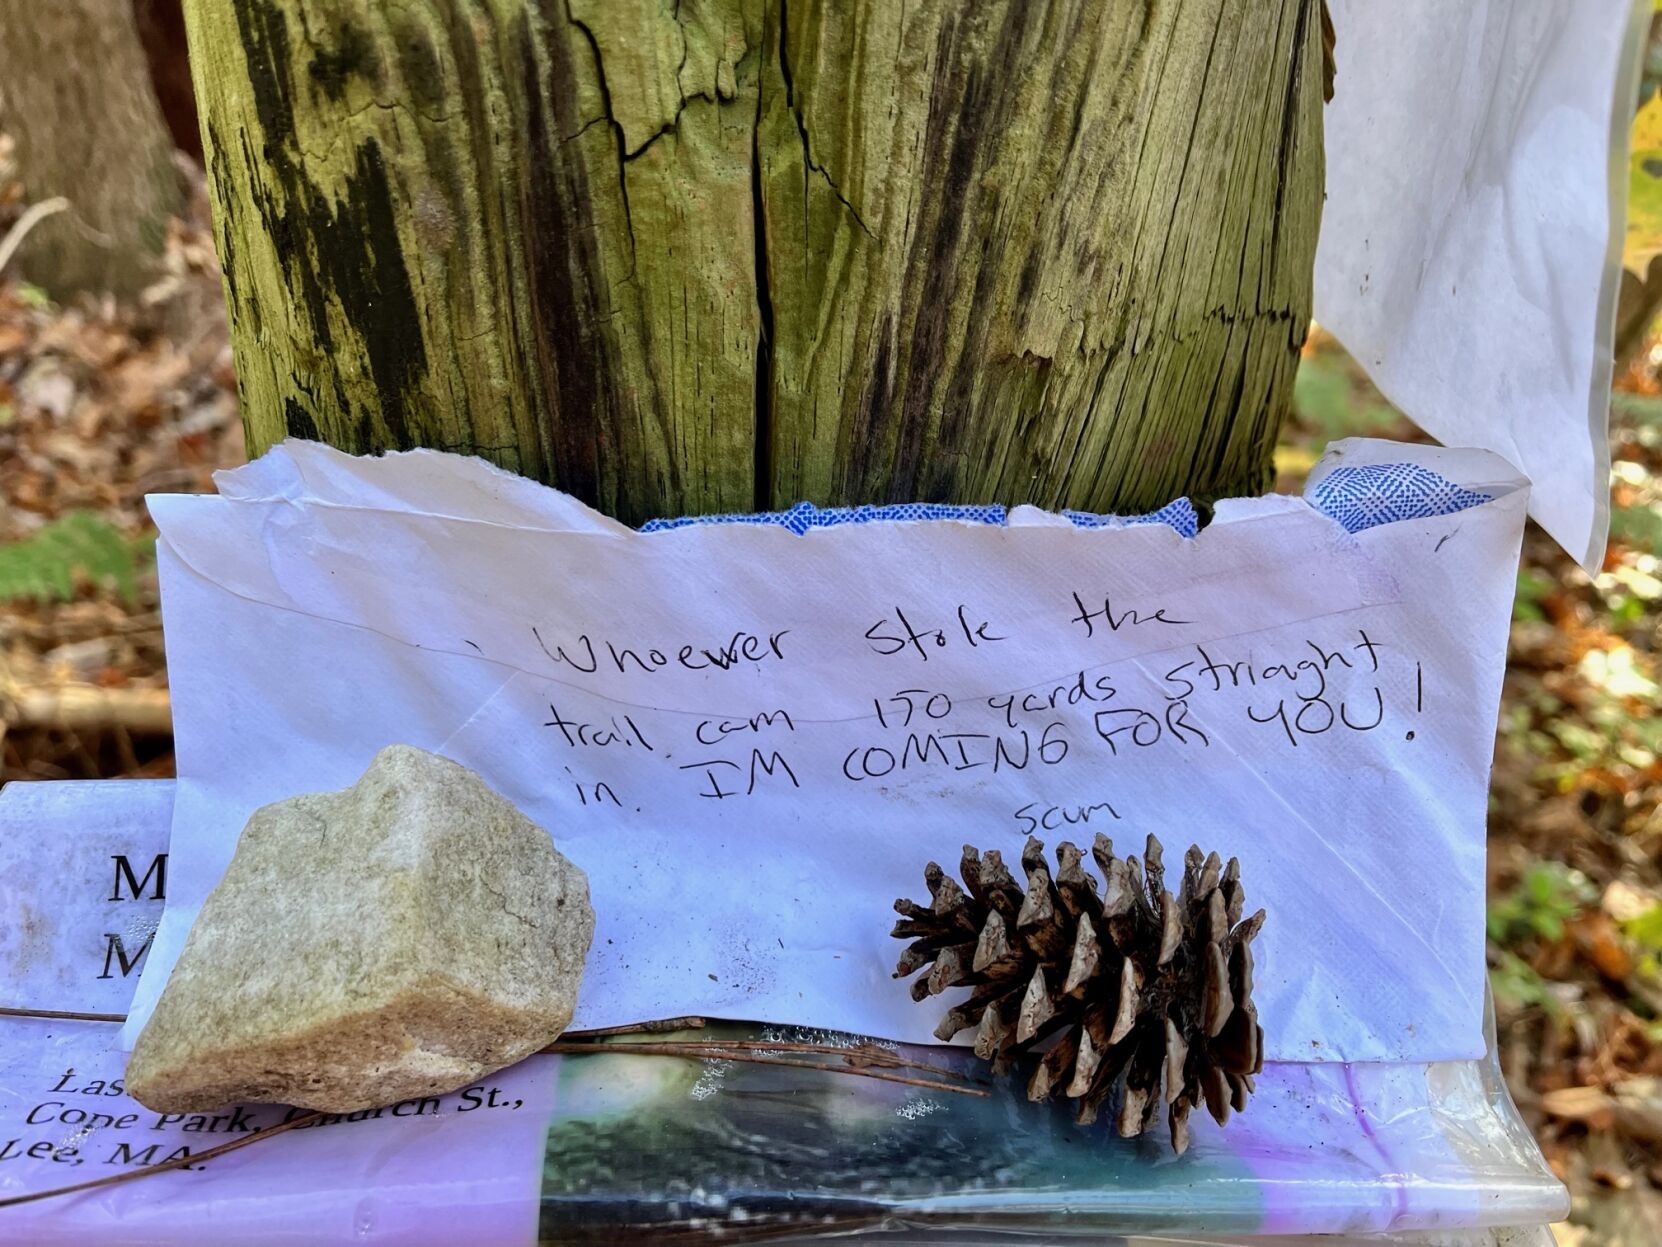 Whoewer stole the
trail cam 150 yards striaght
in. IM COMING FOR YOU!
scum
M
M
Las
Cone Park, Church St.,
Lee, MA.